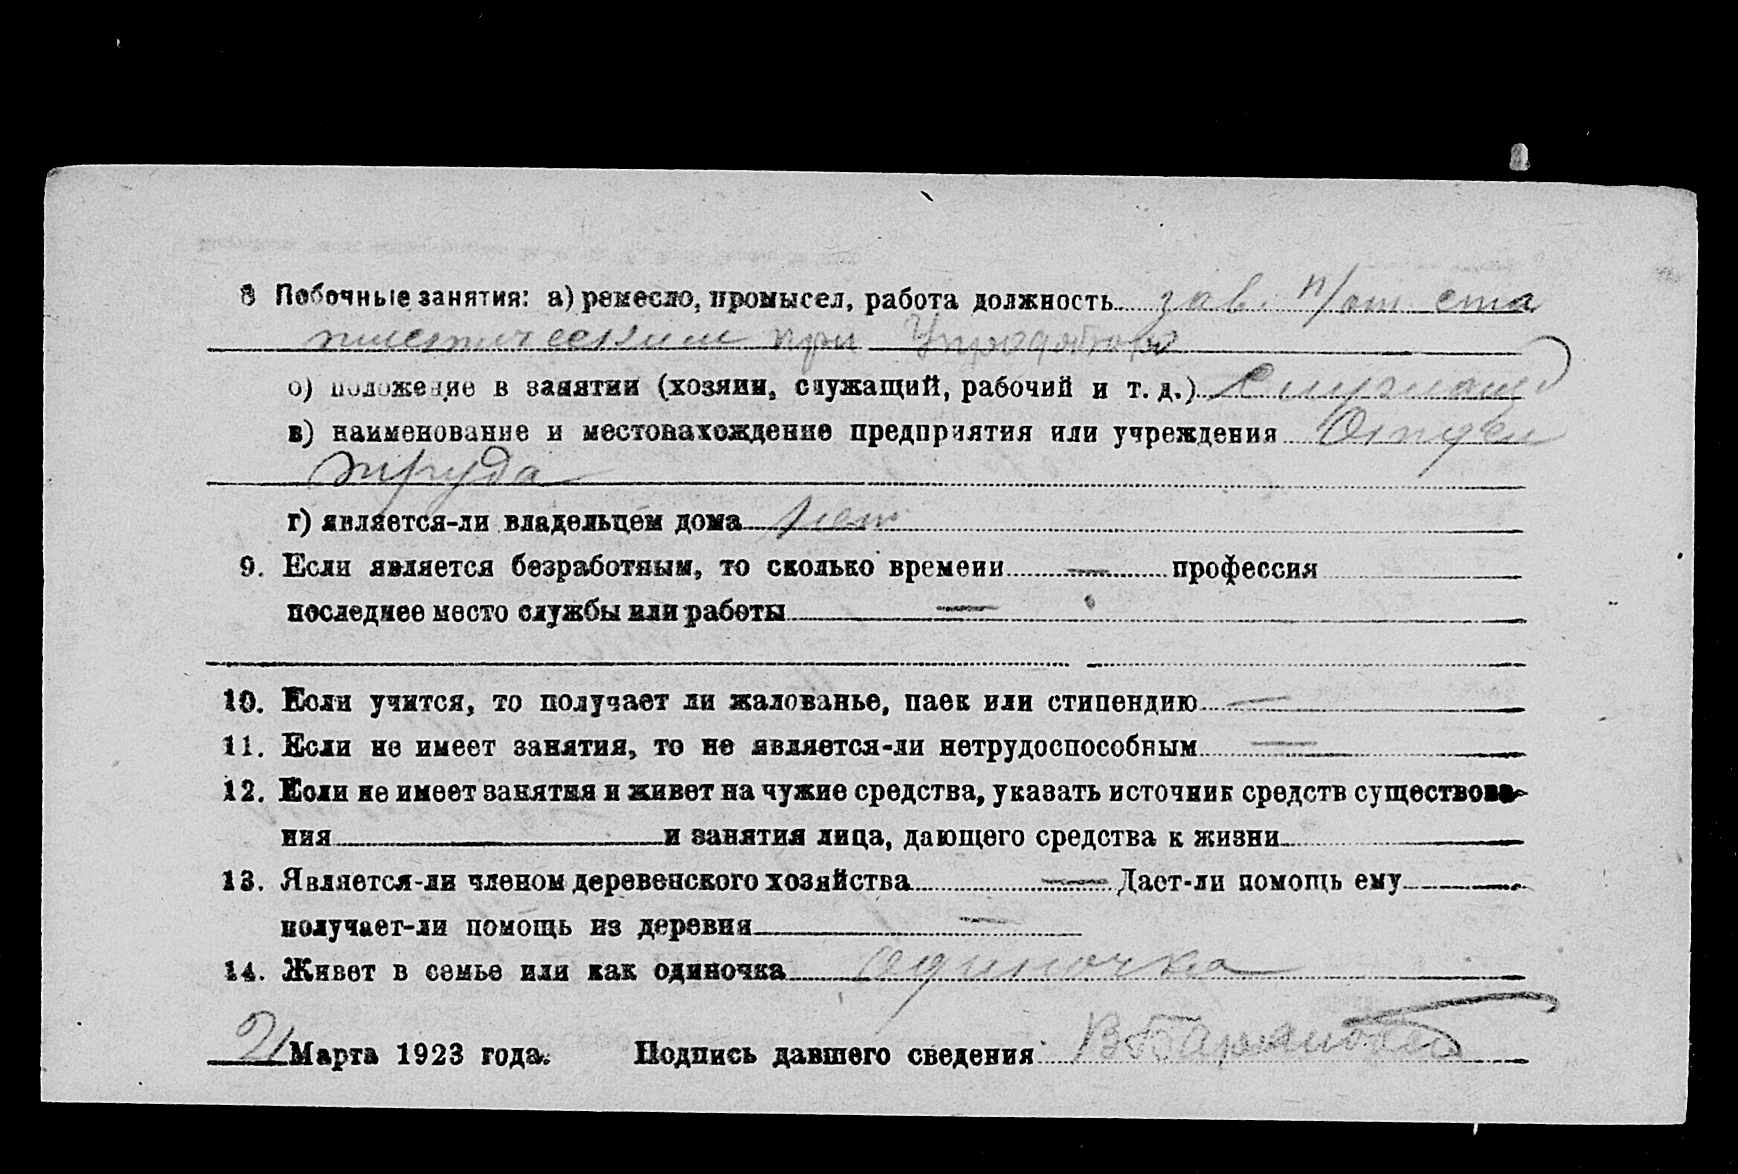 8 Побочные занятия: а) ремесло, промысел, работа должность зав. п/от ста
тистическим при
б) положение в занятии (хозяин, служащий, рабочий и т. д.) Служащ
в) наименование и местонахождение предприятия или учреждения Отдел
труда
г) является-ли владельцем дома нет
9. Если является безработным, то сколько времени — профессия
последнее место службы или работы —
10. Если учится, то получает ли жалованье, паек или стипендию —
11. Если не имеет занятия, то не является-ли нетрудоспособным —
12. Если не имеет занятия и живет на чужие средства, указать источник средств существова-
ния и занятия лица, дающего средства к жизни
13. Является-ли членом деревенского хозяйства — Дает-ли помощь ему
получает-ли помощь из деревни —
14. Живет в семье или как одиночка одиночка
21 Марта 1923 года. Подпись давшего сведения